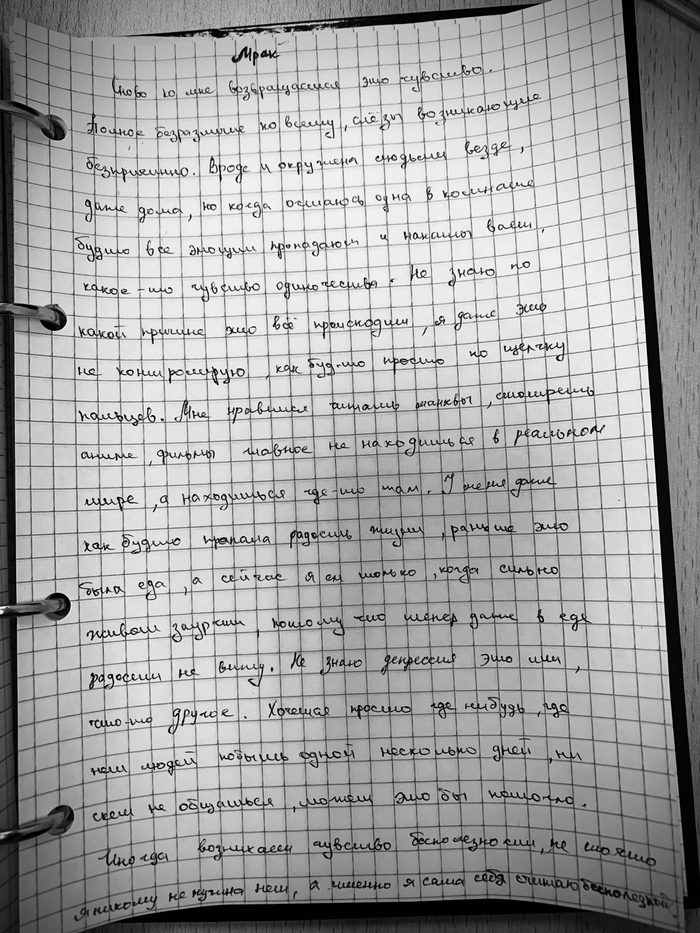 Мрак
Снова ко мне возвращается это чувство.
Полное безразличие ко всему, слёзы возникающие
безпричинно. Вроде и окружена людьми везде,
даже дома, но когда остаюсь одна в комнате
будто все эмоции пропадают и накатывает,
какое-то чувство одиночества. Не знаю по
какой причине это всё происходит, я даже это
не контролирую, как буд-то просто по щелчку
пальцев. Мне нравится читать манхвы, смотреть
аниме, фильмы главное не находиться в реальном
мире, а находиться где-то там. У меня даже
как будто пропала радость жизни, раньше это
была еда, а сейчас я ем только, когда сильно
живот заурчит, потому что теперь даже в еде
радости не вижу. Не знаю депрессия это или,
что-то другое. Хочется просто где нибудь, где
нет людей побыть одной несколько дней, ни
скем не общаться, может это бы помогло.
Иногда возникает чувство бесполезности, не то что
я никому не нужна нет, а именно я сама себя считаю бесполезной